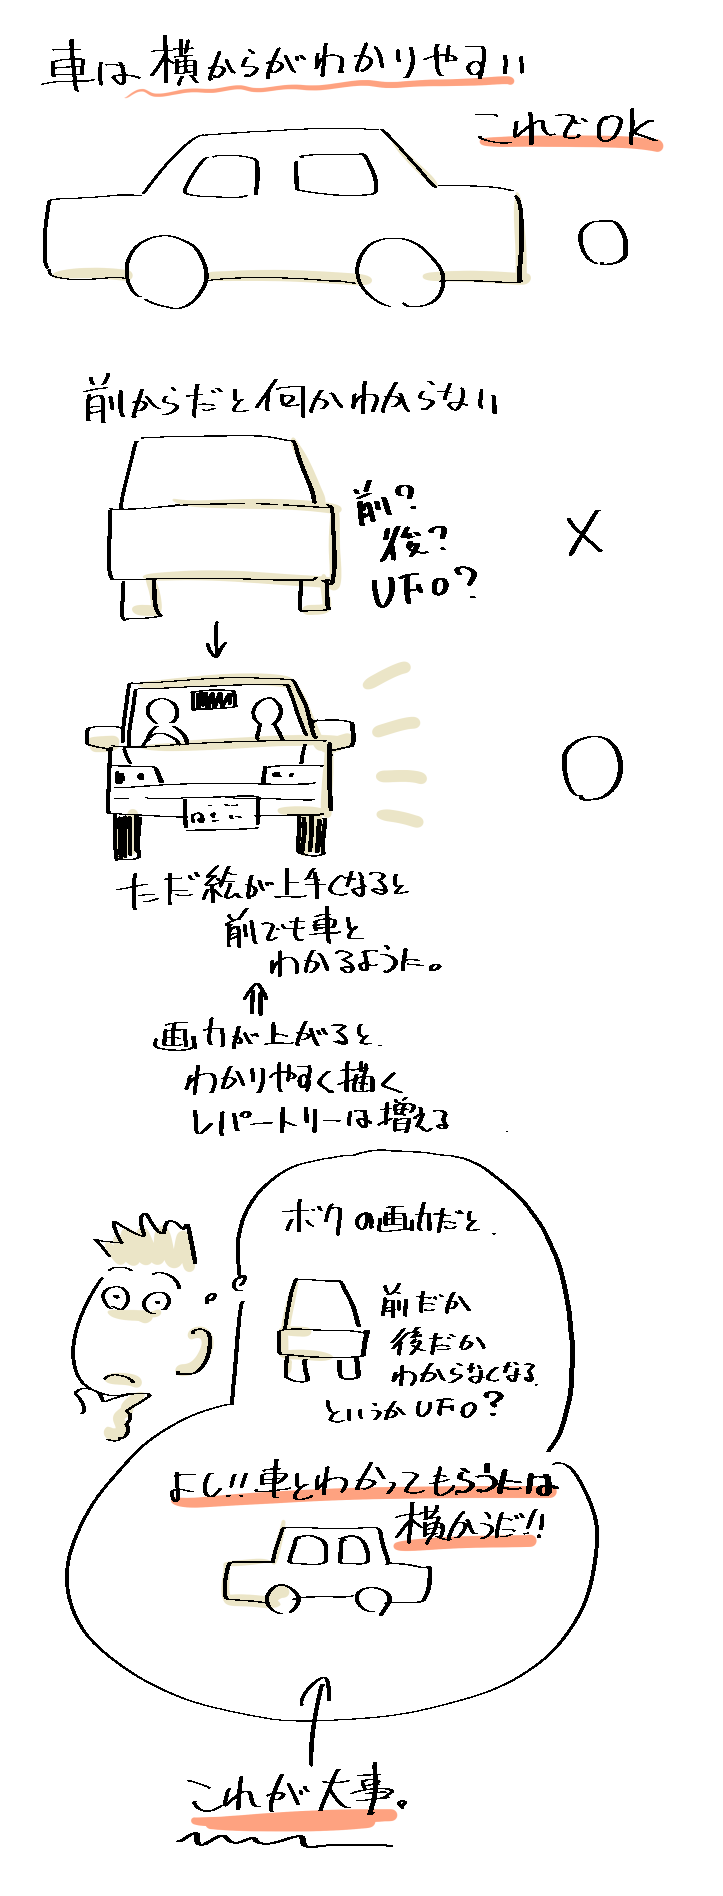 車は横からがわかりやすい
これでOK
前からだと何かわからない
前?
後?
UFO?
ただ絵が上手くなると
前でも車と
わかるように。
画力が上がると
わかりやすく描く
レパートリーは増える
ボクの画力だと
前だか
後だか
わからなくなる
というかUFO?
よし!!車とわかってもらうには
横からだ!!
これが大事。